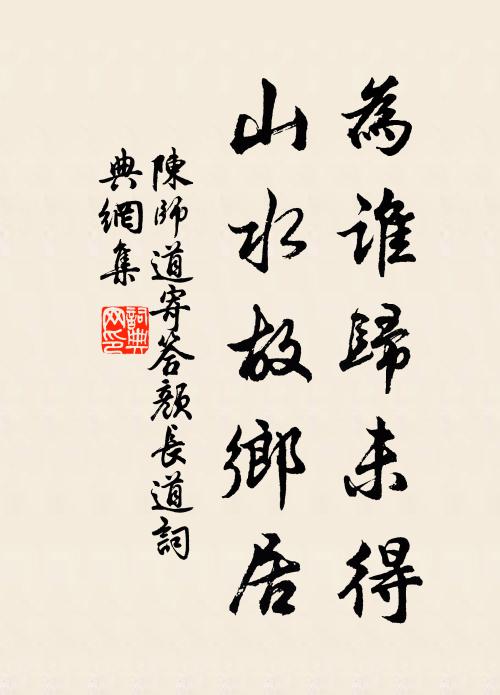 為誰歸未得
山水故鄉居
陳師道寄答顏長道詞
典網集
詞典
网印